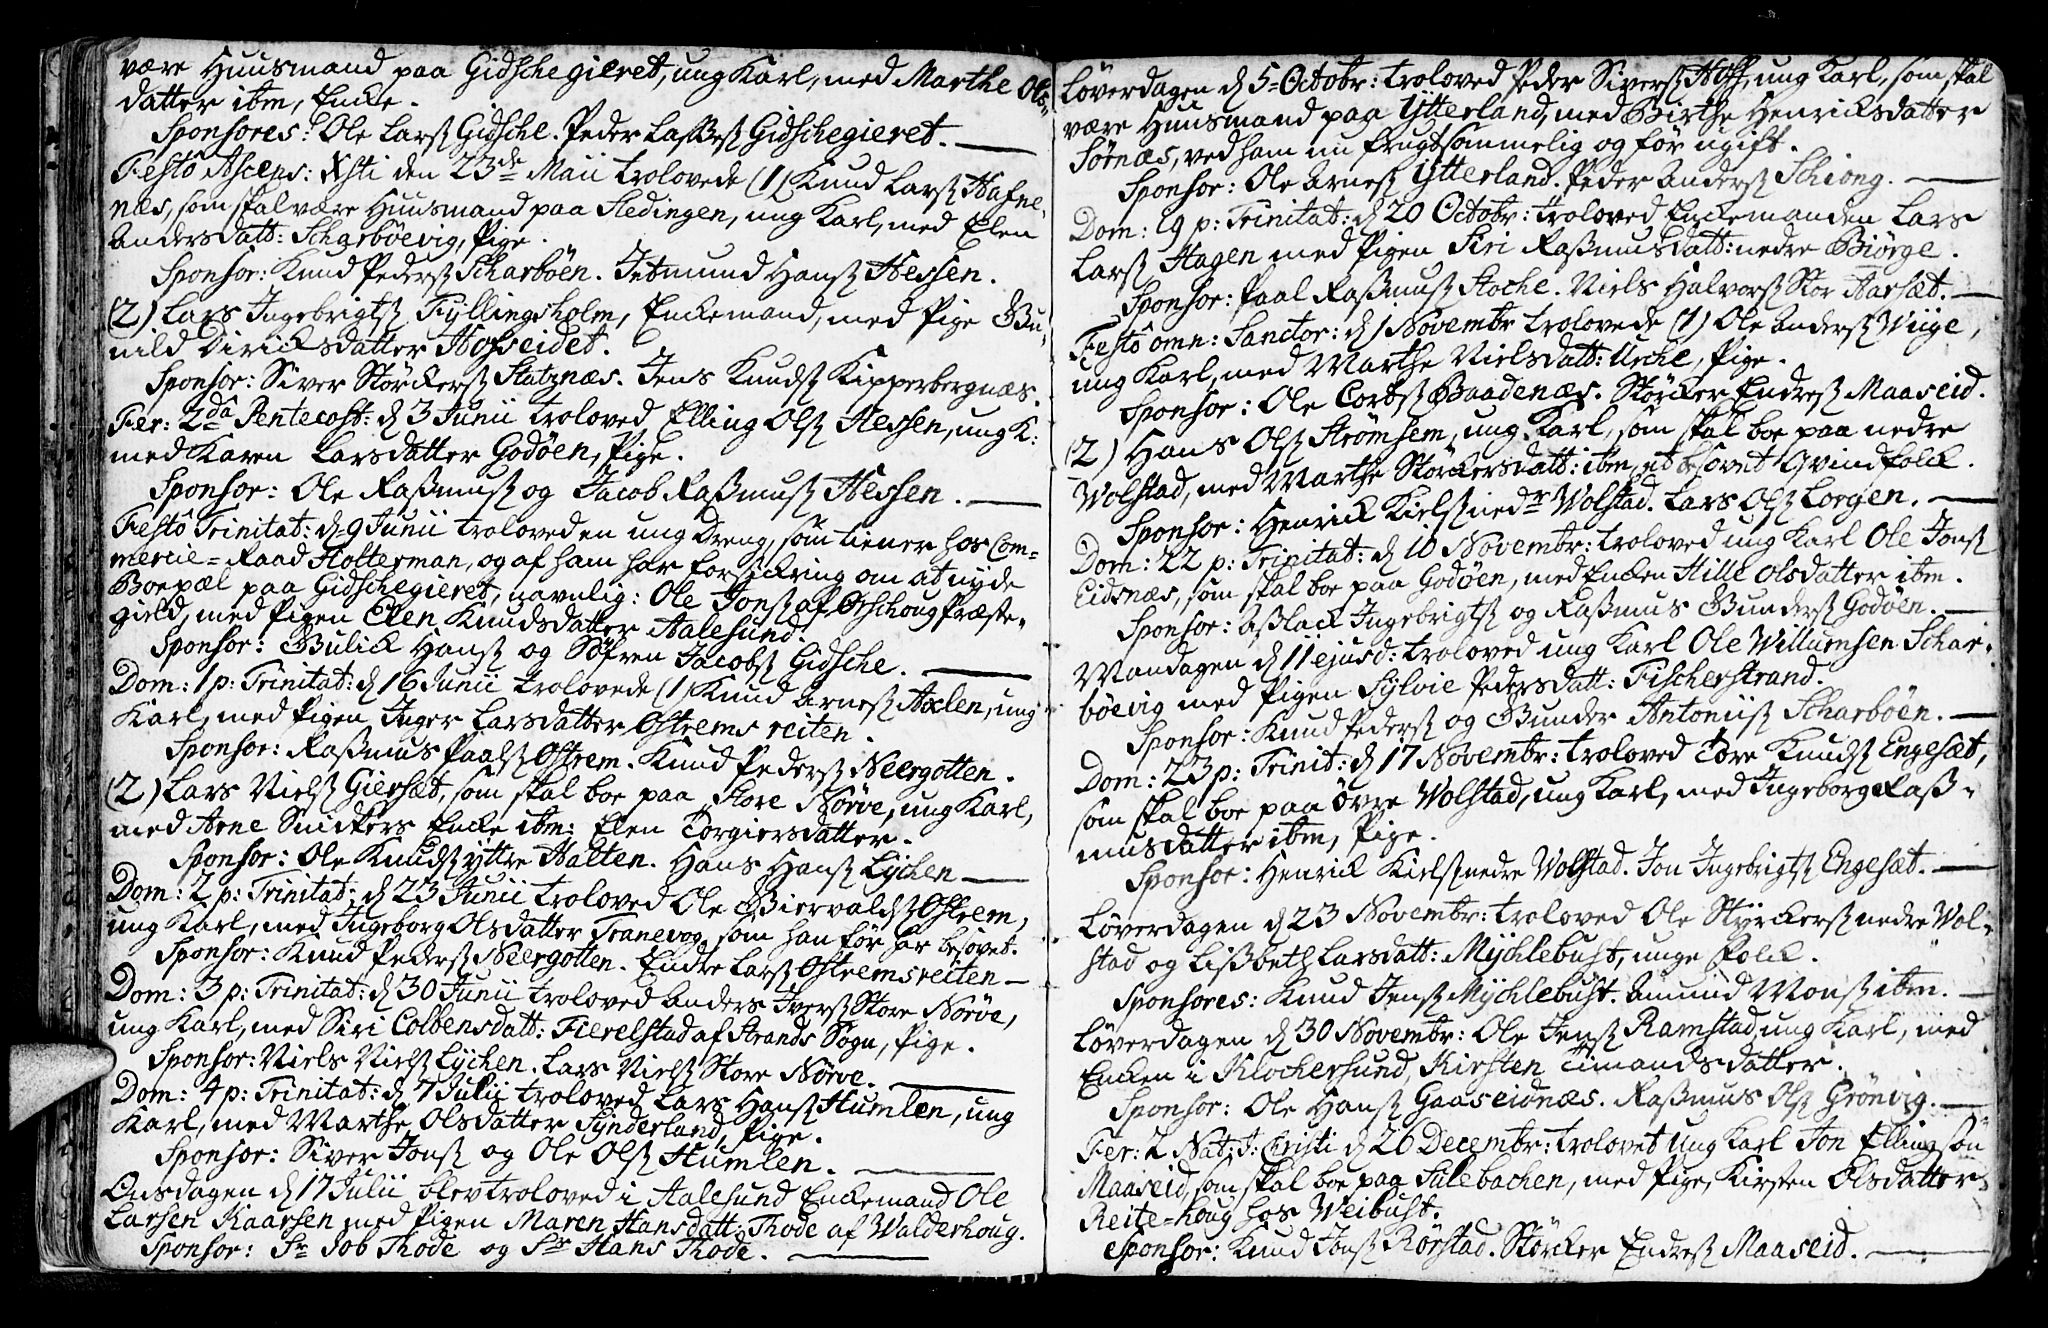 være Huusmand paa Gidschegieret, ung Karl, med Marthe Ols-
datter ibm, Encke.
Sponsores: Ole Larsß Gidsche. Peder Lasseß Gidschegieret.
Festô Ascens: Xsti den 23de Maii trolovede (1) Knud Larsß Hafne-
næs, som skal være Huusmand paa Sledingen, ung Karl, med Elen
Andersdatt: Scharbôevig, Pige.
Sponsor: Knud Pedersß Scharbôen. Jetmund Hansß Hessen.
(2) Lars Ingebrigtß Fyllingsholm, Enckemand, med Pige Gu-
nild Diricksdatter Hofseidet.
Sponsor: Siver Störckersß Slatznæs. Jens Knudsß Kipperbergnæs.
Fer: 2dâ Pentecost: d 3 Junii troloved Elling Olsß Hessen, ung K:
med Karen Larsdatter Godôen, Pige.
Sponsor: Ole Raßmusß og Jacob Raßmusß Hessen.
Festô Trinitat: d 9 Junii troloved en ung Dreng, som tiener hos Com-
mercie-Raad Holterman, og af ham har forsickring om at nyde
Boepæl paa Gidschegieret, navnlig: Ole Jonsß af Ørschoug Præste-
gield, med Pigen Elen Knudsdatter Aalesund.
Sponsor: Gulick Hansß og Söfren Jacobsß Gidsche.
Dom: 1 p: Trinitat: d 16 Junii trolovede (1) Knud Arnesß Axlen, ung
Karl, med Pigen Inger Larsdatter Østremsreiten.
Sponsor: Raßmus Paalsß Østrem. Knud Pedersß Neergotten.
(2) Lars Nielsß Giersæt, som skal boe paa Store Nörve, ung Karl,
med Arne Snickers Encke ibm: Elen Torgiersdatter.
Sponsor: Ole Knudsß yttre Halten. Hans Hansß Lychen
Dom: 2 p: Trinitat: d 23 Junii troloved Ole Biervaldsß Østrem,
ung Karl, med Ingeborg Olsdatter Tranevog, som han för har besovet.
Sponsor: Knud Pedersß Neergotten. Endre Larsß Østremsreiten
Dom: 3 p: Trinitat: d 30 Junii troloved Anders Iversß Store Nörve,
ung Karl, med Siri Colbensdatt: Fierelstad af Strands Sogn, Pige.
Sponsor: Niels Nielsß Lychen. Lars Nielsß Store Nörve.
Dom: 4 p: Trinitat: d 7 Julii troloved Lars Hansß Humlen, ung
Karl, med Marthe Olsdatter Synderland, Pige.
Sponsor: Siver Jonsß og Ole Olsß Humlen.
Onsdagen d 17 Julii blev troloved i Aalesund Enckemand Ole
Larsen Kaarsen med Pigen Maren Hansdatt: Thode af Walderhoug.
Sponsor: Sr Job Thode og Sr Hans Thode.
Löverdagen d 5 Octobr: troloved Peder Siversß Hoff, ung Karl, som skal
være Huusmand paa Ytterland, med Birthe Henricksdatter
Sörnæs, ved ham nu frugtsommelig og för ugift.
Sponsor: Ole Arnesß Ytterland. Peder Andersß Schiong.
Dom: 19 p: Trinitat: d 20 Octobr: troloved Enckemanden Lars
Larsß Hagen med Pigen Siri Raßmusdatt: nedre Biörge.
Sponsor: Paal Raßmusß Hoche. Niels Halvorsß Stor Aarsæt.
Festô omn: Sanctor: d 1 Novembr trolovede (1) Ole Andersß Wiige,
ung Karl, med Marthe Nielsdatt: Urche, Pige.
Sponsor: Ole Cortsß Baadenæs. Störcker Endresß Maaseid.
(2) Hans Olsß Strömsem, ung Karl, som skal boe paa nedre
Wolstad, med Marthe Störckersdatt: ibm, et besovet Qvindfolck.
Sponsor: Henrick Kielsß nedr Wolstad. Lars Olsß Lorgen.
Dom: 22 p: Trinitat: d 10 Novembr: troloved ung Karl Ole Jonsß
Eidsnæs, som skal boe paa Godôen, med Encken Hille Olsdatter ibm.
Sponsor: Aßlack Ingebrigtsß og Raßmus Gundersß Godôen.
Mandagen d 11 ejusd: troloved ung Karl Ole Willumsen Schar-
bôevig med Pigen Sylvie Pedersdatt: Fischerstrand.
Sponsor: Knud Pedersß og Gunder Antoniisß Scharbôen.
Dom: 23 p: Trinit: d 17 Novembr: troloved Tore Knudsß Engesæt,
som skal boe paa övre Wolstad, ung Karl, med Ingeborg Raß-
musdatter ibm, Pige.
Sponsor: Henrick Kielsß nedre Wolstad. Jon Ingebrigtsß Engesæt.
Löverdagen d 23 Novembr: troloved Ole Styrckersß nedre Wol-
stad og Lißbeth Larsdatt: Mychlebust, unge Folck.
Sponsores: Knud Jensß Mychlebust. Amund Monsß ibm.
Löverdagen d 30 Novembr: Ole Jensß Ramstad, ung Karl, med
Encken i Klochersund, Kirsten Timandsdatter.
Sponsor: Ole Hansß Gaaseidnæs. Raßmus Olsß Grönvig.
Fer: 2 Nat: J: Christi d 26 Decembr: trolovet ung Karl Jon Ellingsön
Maaseid, som skal boe paa Sulebachen, med Pige, Kirsten Olsdatter
Reite-houg hos Weibust.
Sponsor: Knud Jonsß Rörstad. Störcker Endresß Maaseid.